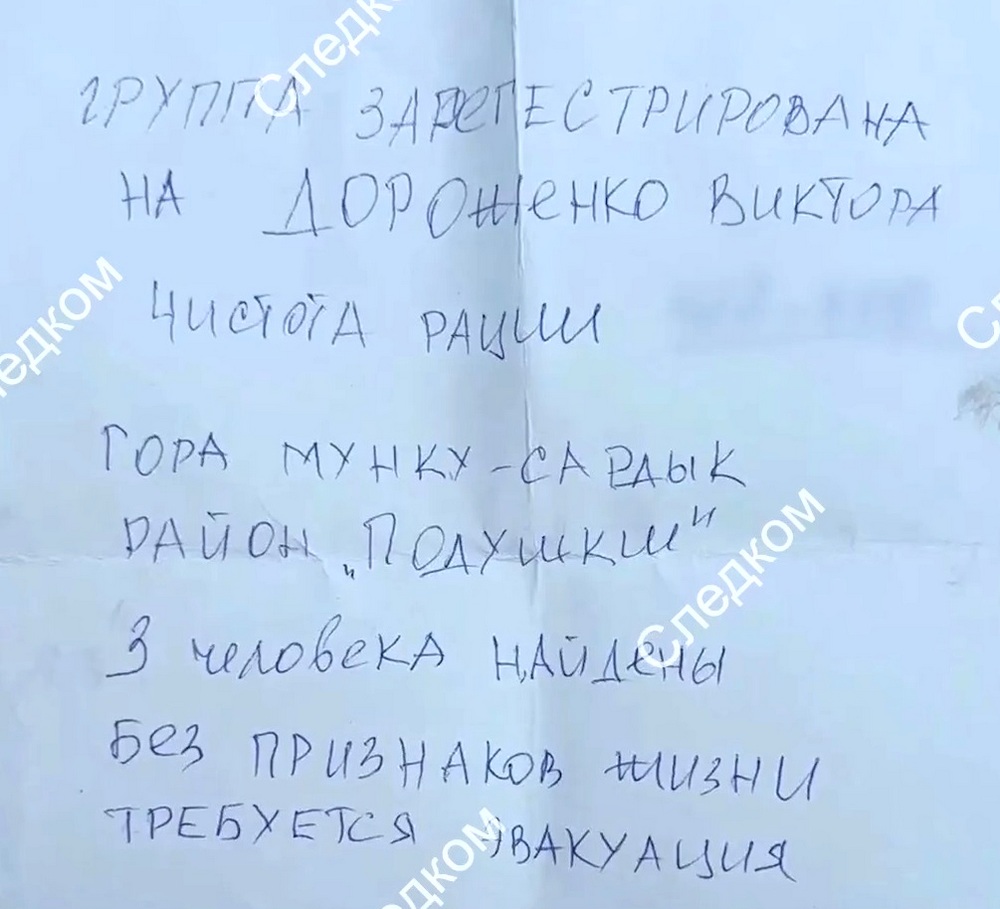 ГРУППА ЗАРЕГЕСТРИРОВАНА
НА ДОРОЖЕНКО ВИКТОРА
ЧИСТОТА РАЦИИ
ГОРА МУНКУ-САРДЫК
РАЙОН „ПОДУШКИ"
3 человека НАЙДЕНЫ
БЕЗ ПРИЗНАКОВ ЖИЗНИ
ТРЕБУЕТСЯ ЭВАКУАЦИЯ
Следком
Следком
Следком
Следком